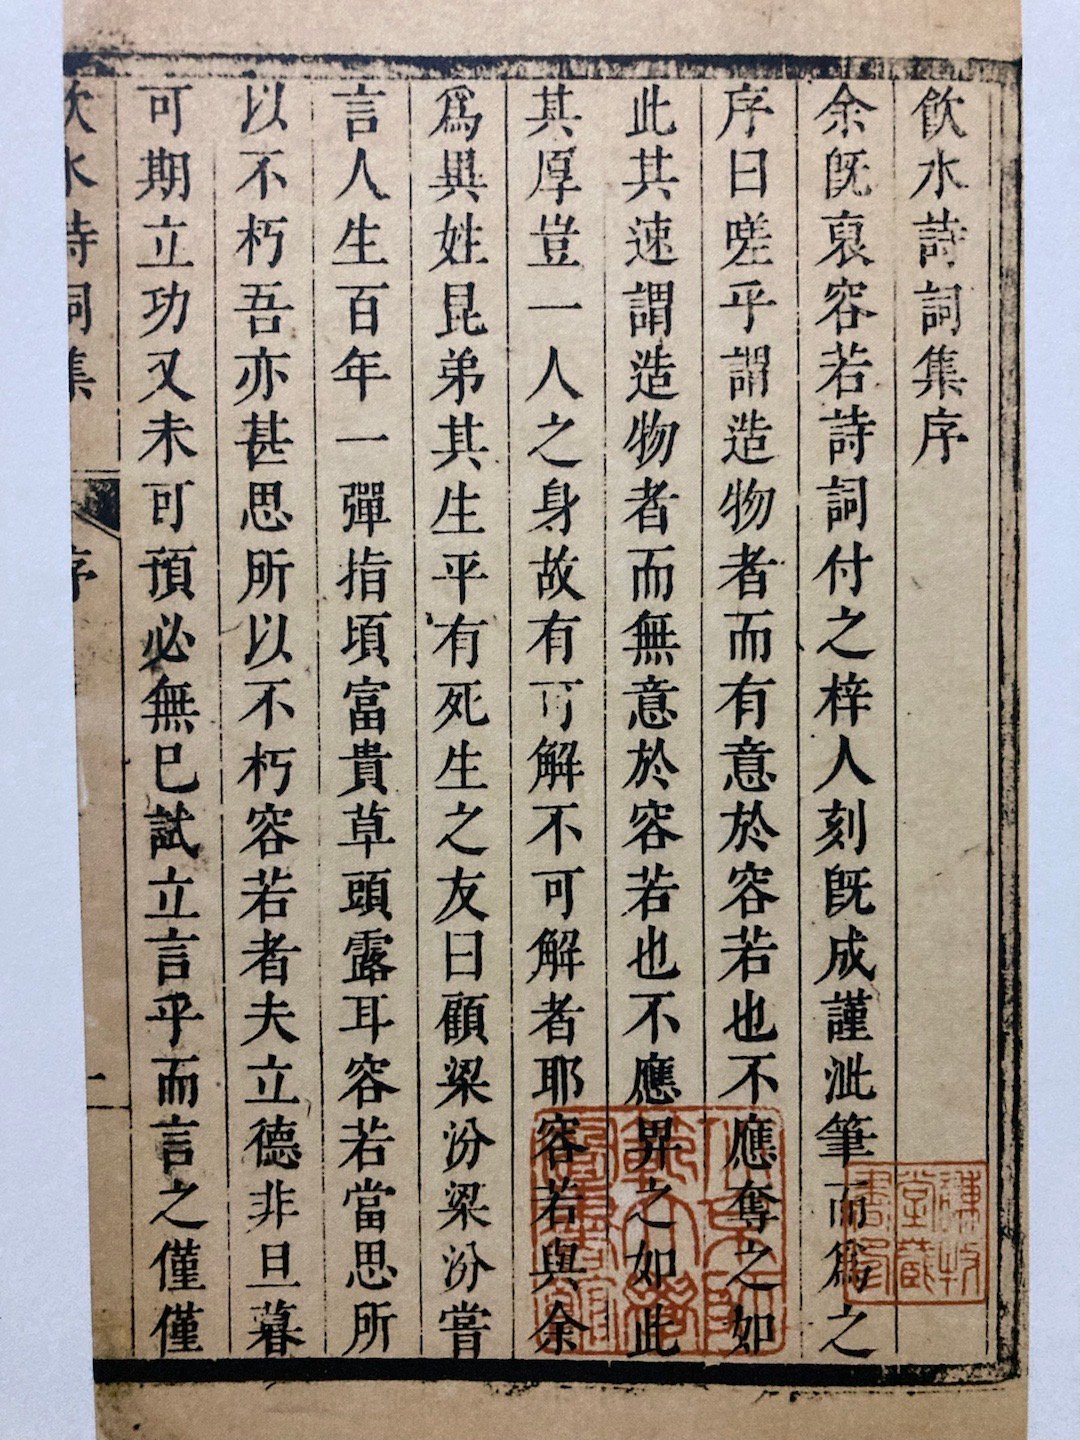 飲水詩詞集序
余旣裒容若詩詞付之梓人刻旣成謹泚筆而爲之
序曰嗟乎謂造物者而有意於容若也不應奪之如
此其速謂造物者而無意於容若也不應畀之如此
其厚豈一人之身故有可解不可解者耶容若與余
爲異姓昆弟其生平有死生之友曰顧梁汾梁汾嘗
言人生百年一彈指頃富貴草頭露耳容若當思所
以不朽吾亦甚思所以不朽容若者夫立德非旦暮
可期立功又未可預必無已試立言乎而言之僅僅
飲水詩詞集
序
一